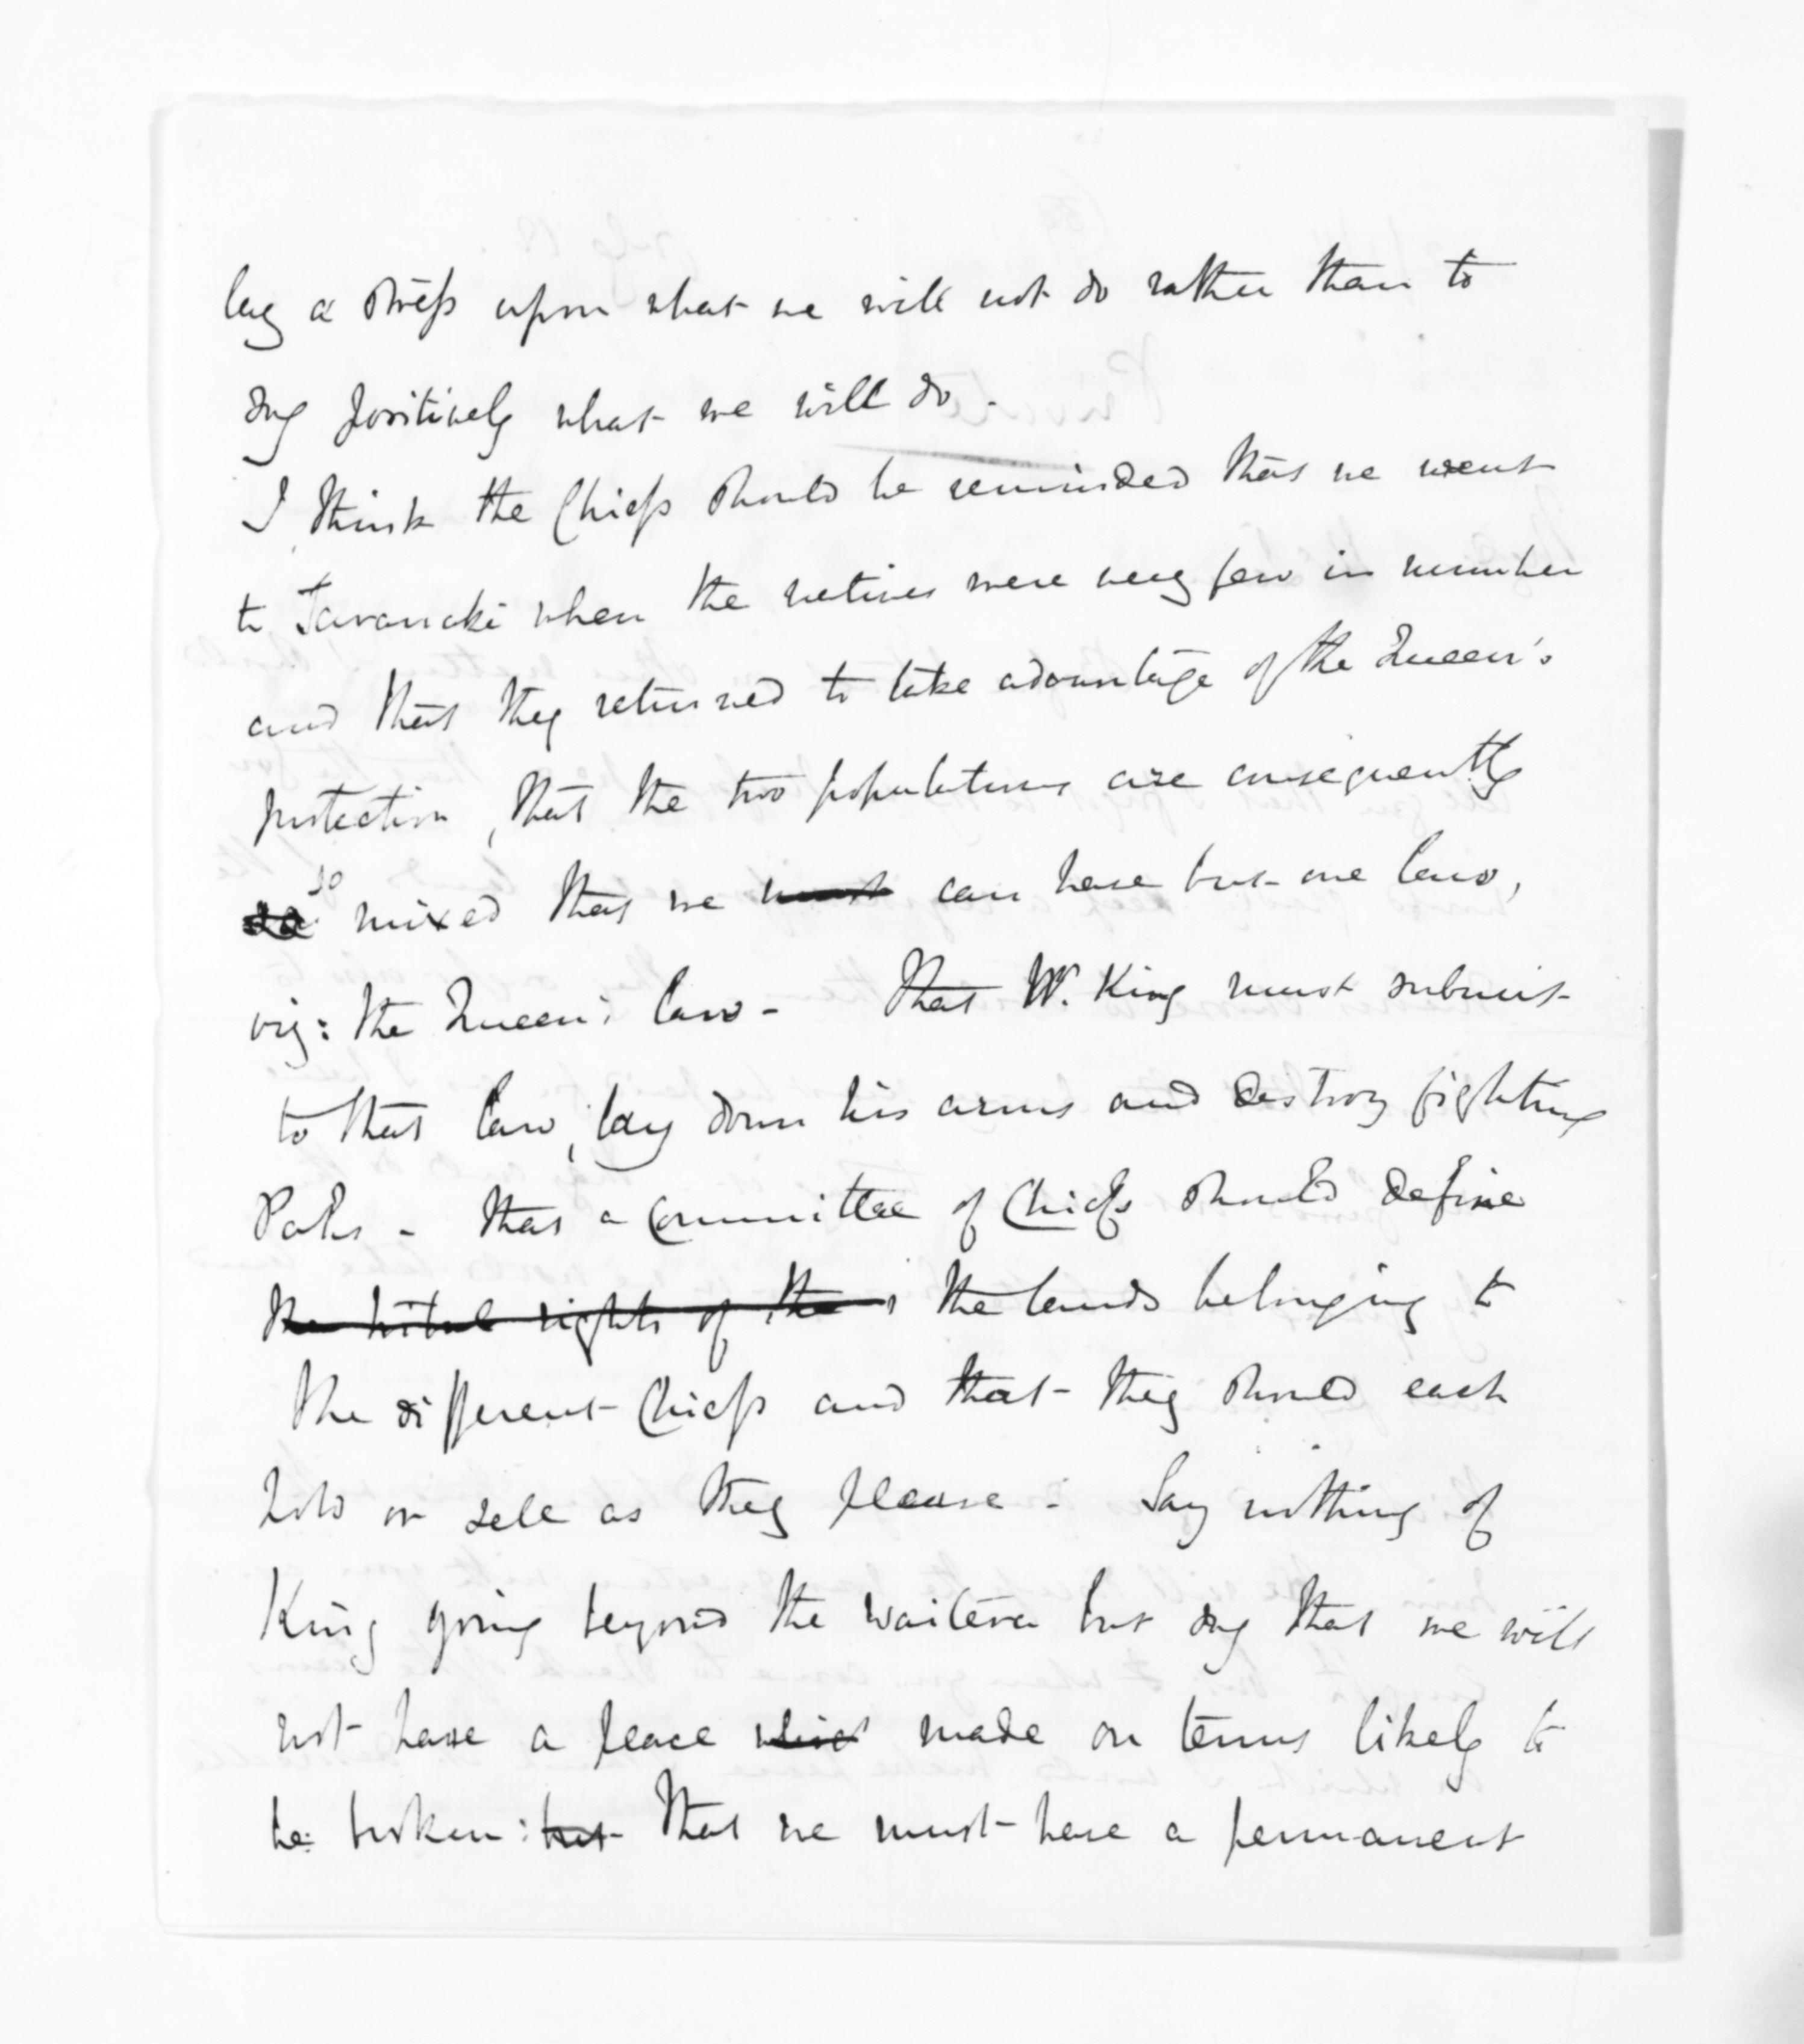 lay a stress upon what we will not do rather than to
say positively what we will do.
I think the Chiefs should be reminded that we went
to Taranaki when the natives were very few in number
and that they returned to take advantage of the Queen's
protection, that the two populations are consequently
so mixed that we must can have but one law,
viz: the Queen's law - That W. King must submit
to that law, lay down his arms and destroy fighting
Pahs - that a Committee of Chiefs should define
the tribal rights of the the lands belonging to
the different Chiefs and that they should each
hold or sell as they please - Say nothing of
King going beyond the Waitera but say that we will
not have a peace which made on terms likely to
be broken: but that we must have a permanent